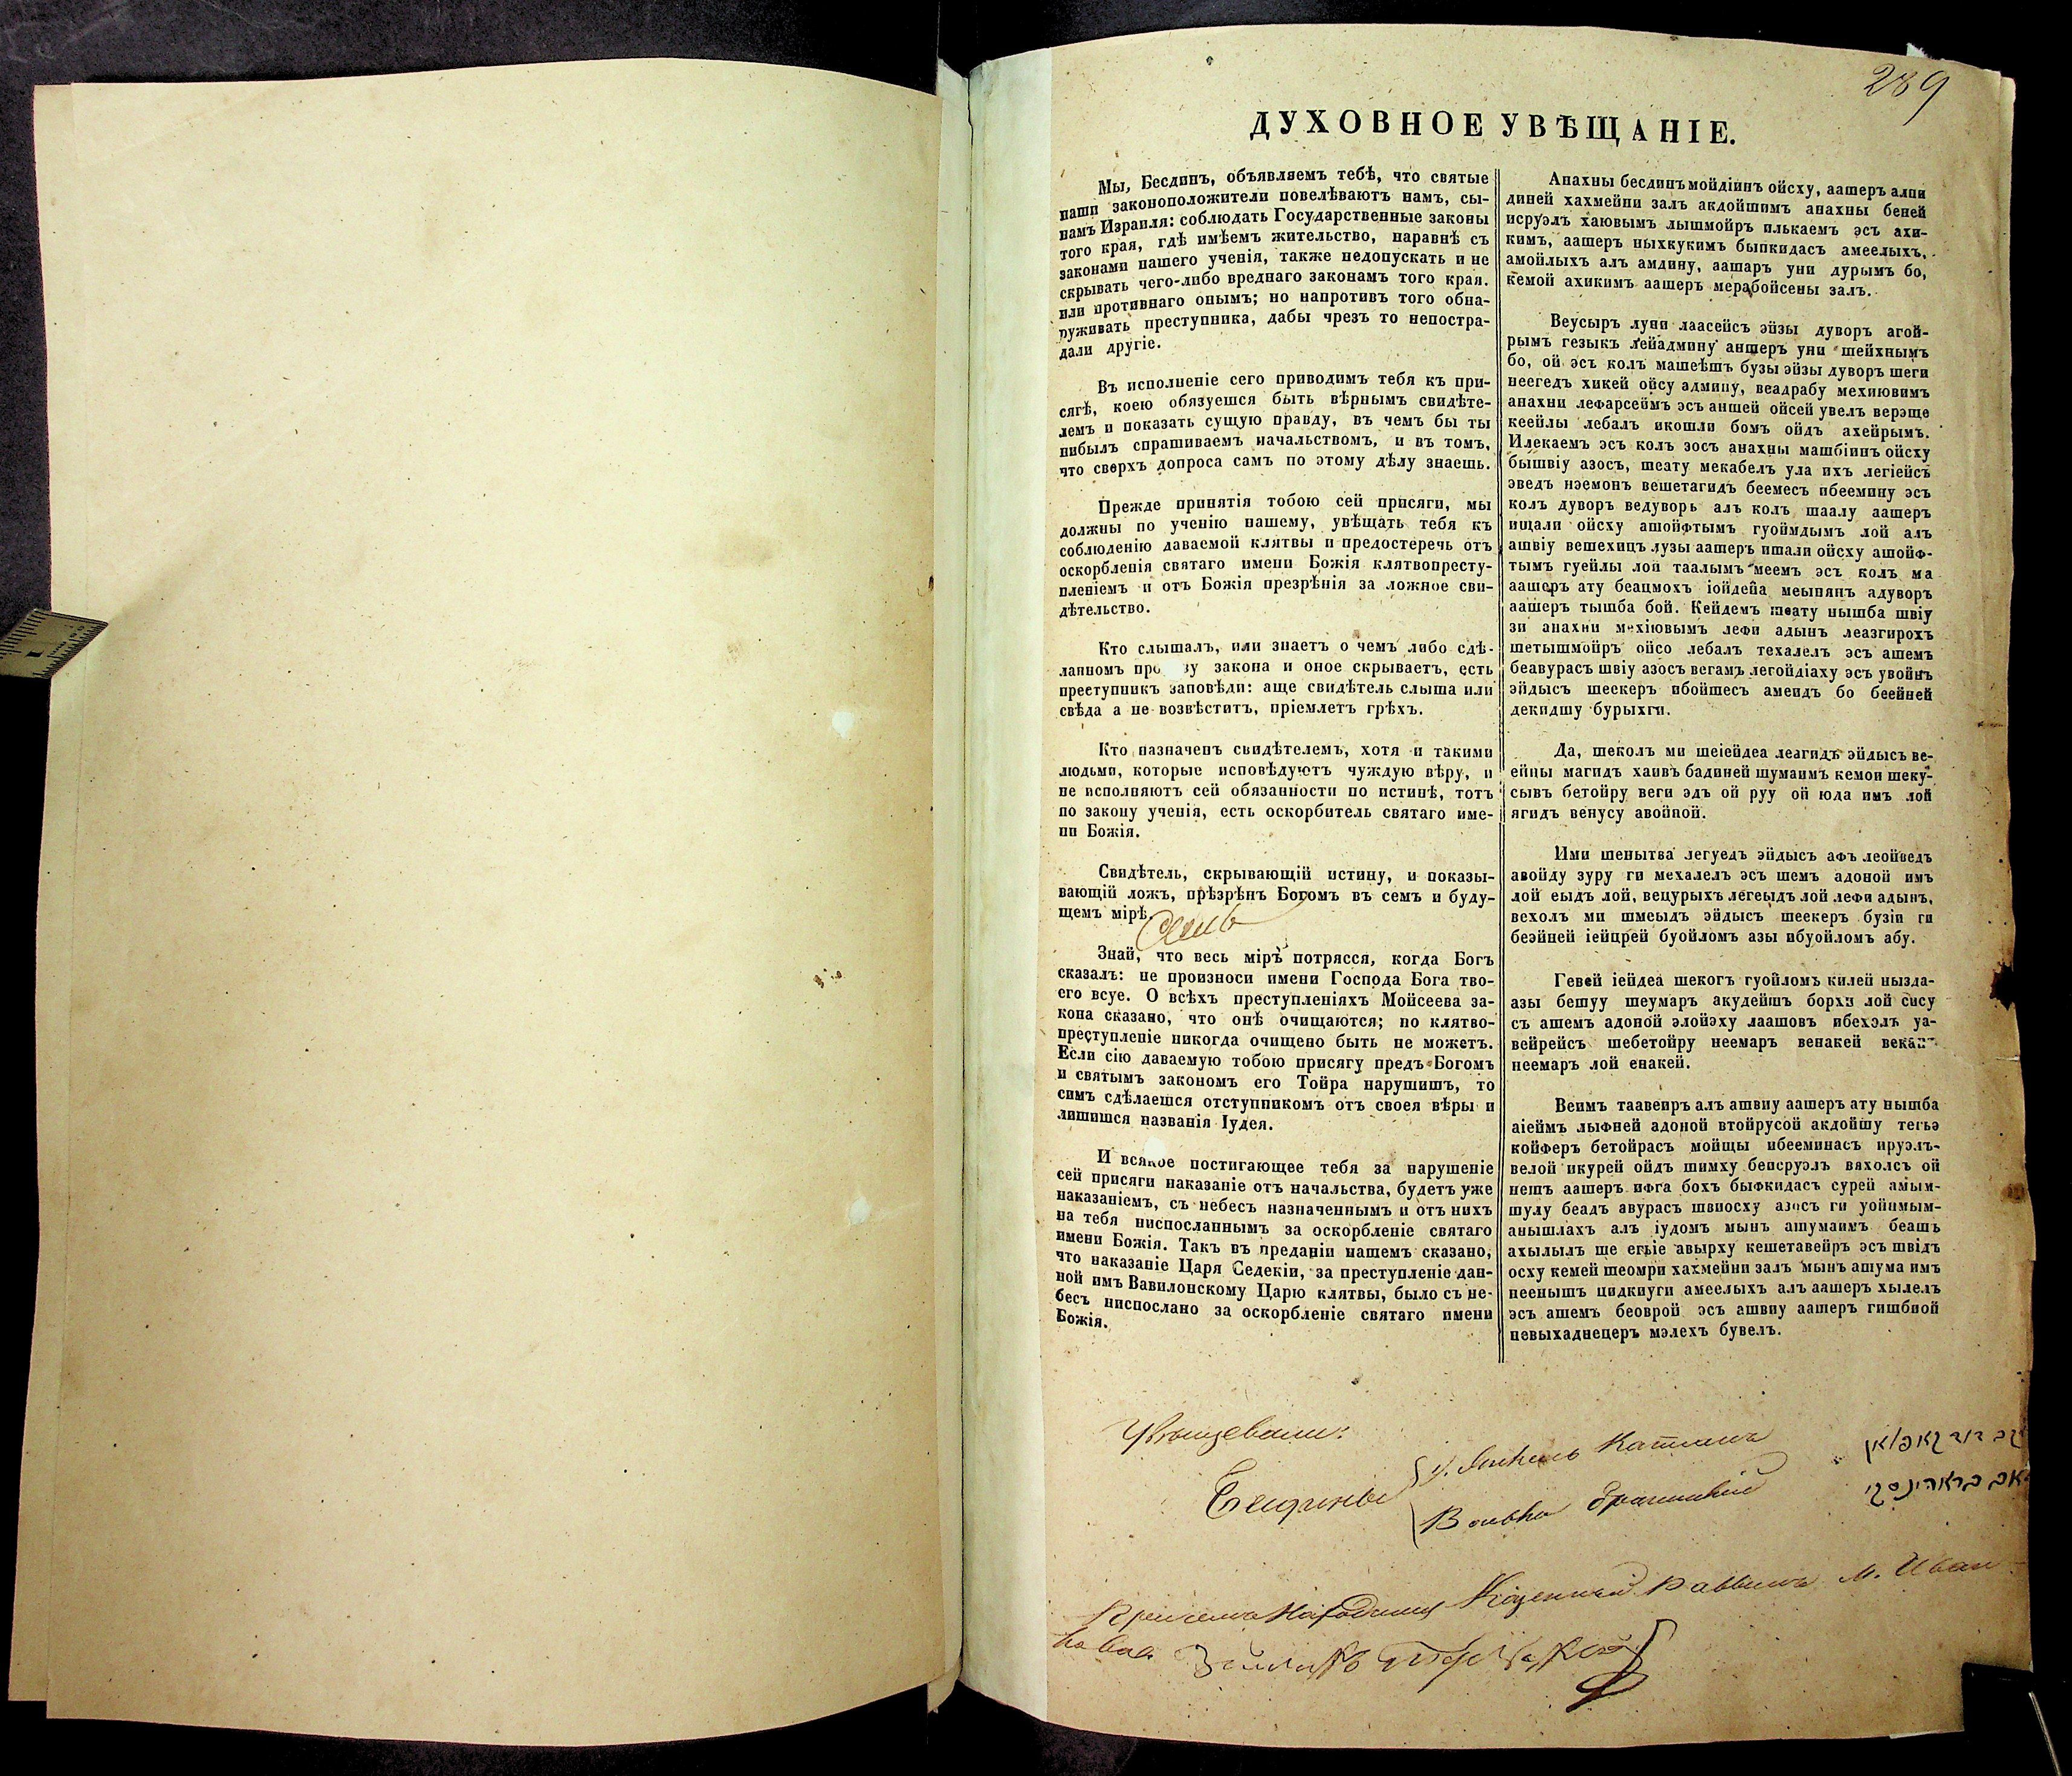 289
ДУХОВНОЕ УВѢЩАНІЕ.
Мы, Бесдинъ, объявляемъ тебѣ, что святые
наши законоположители повелѣваютъ намъ, сы-
намъ Израиля: соблюдать Государственные законы
того края, гдѣ имѣемъ жительство, наравнѣ съ
законами нашего ученія, также недопускать и не
скрывать чего-либо вреднаго законамъ того края.
или противнаго онымъ; но напротивъ того обна-
руживать преступника, дабы чрезъ то непостра-
дали другіе.
Въ исполненіе сего приводимъ тебя къ при-
сягѣ, коею обязуешся быть вѣрнымъ свидѣте-
лемъ и показать сущую правду, въ чемъ бы ты
нибылъ спрашиваемъ начальствомъ, и въ томъ,
что сверхъ допроса самъ по этому дѣлу знаешь.
Прежде принятія тобою сей присяги, мы
должны по ученію нашему, увѣщать тебя къ
соблюденію даваемой клятвы и предостеречь отъ
оскорбленія святаго имени Божія клятвопресту-
пленіемъ и отъ Божія презрѣнія за ложное сви-
дѣтельство.
Кто слышалъ, или знаетъ о чемъ либо сдѣ-
ланномъ про зу закона и оное скрываетъ, есть
преступникъ заповѣди: аще свидѣтель слыша или
свѣда а не возвѣститъ, пріемлетъ грѣхъ.
Кто назначенъ свидѣтелемъ, хотя и такими
людьми, которые исповѣдуютъ чуждую вѣру, и
не исполняютъ сей обязанности по истинѣ, тотъ
по закону ученія, есть оскорбитель святаго име-
ни Божія.
Свидѣтель, скрывающій истину, и показы-
вающій ложъ, прѣзрѣнъ Богомъ въ семъ и буду-
щемъ мірѣ.
Знай, что весь міръ потрясся, когда Богъ
сказалъ: не произноси имени Господа Бога тво-
его всуе. О всѣхъ преступленіяхъ Мойсеева за-
кона сказано, что онѣ очищаются; но клятво-
преступленіе никогда очищено быть не можетъ.
Если сію даваемую тобою присягу предъ Богомъ
и святымъ закономъ его Тойра нарушишъ, то
симъ сдѣлаешся отступникомъ отъ своея вѣры и
лишишся названія Іудея.
И всякое постигающее тебя за нарушеніе
сей присяги наказаніе отъ начальства, будетъ уже
наказаніемъ, съ небесъ назначеннымъ и отъ нихъ
на тебя ниспосланнымъ за оскорбленіе святаго
имени Божія. Такъ въ преданіи нашемъ сказано,
что наказаніе Царя Седекіи, за преступленіе дан-
ной имъ Вавилонскому Царю клятвы, было съ не-
бесъ ниспослано за оскорбленіе святаго имени
Божія.
Анахны бесдинъ мойдіинъ ойсху, аашеръ алпи
диней хахмейни залъ акдойшимъ анахны беней
исруэлъ хаювымъ лышмойръ илькаемъ эсъ ахи-
кимъ, аашеръ ныхкукимъ быпкидасъ амеелыхъ,
амойлыхъ алъ амдину, аашаръ уни дурымъ бо,
кемой ахикимъ аашеръ мерабойсены залъ.
Веусыръ луни лаасейсъ эйзы дуворъ агой-
рымъ гезыкъ лейадмину аншеръ уни шейхнымъ
бо, ой эсъ колъ машеѣшъ бузы эйзы дуворъ шеги
неегедъ хикей ойсу админу, веадрабу мехиювимъ
анахни лефарсеймъ эсъ аншей ойсей увелъ верэще
кеейлы лебалъ икошли бомъ ойдъ ахейрымъ.
Илекаемъ эсъ колъ зосъ анахны машбіинъ ойсху
бышвіу азосъ, шеату мекабелъ ула ихъ легіейсъ
эведъ нэемонъ вешетагидъ беемесъ ибеемину эсъ
колъ дуворъ ведуворъ алъ колъ шаалу аашеръ
ишали ойсху ашойфтымъ гуоймдымъ лой алъ
ашвіу вешехицъ лузы аашеръ ишали ойсху ашойф-
тымъ гуейлы лои таалымъ меемъ эсъ колъ ма
аашеръ ату беацмохъ іойдейа меыпянъ адуворъ
аашеръ тышба бой. Кейдемъ шеату нышба швіу
зи анахни мехіювымъ лефи адынъ леазгирохъ
шетышмойръ ойсо лебалъ техалелъ эсъ ашемъ
беавурасъ швіу азосъ вегамъ легойдіаху эсъ увойнъ
эйдысъ шеекеръ ибойшесъ амеидъ бо беейней
декидшу бурыхги.
Да, шеколъ ми шеіейдеа леагидъ эйдысъ ве-
ейцы магидъ хаивъ бадиней шумаимъ кемои шеку-
сывъ бетойру веги эдъ ой руу ой юда имъ лой
ягидъ венусу авойной.
Ими шенытва легуедъ эйдысъ афъ леойведъ
авойду зуру ги мехалелъ эсъ шемъ адоной имъ
лой еыдъ лой, вецурыхъ легеыдъ лой лефи адынъ,
вехолъ ми шмеыдъ эйдысъ шеекеръ бузіи ги
беэйней іейцрей буойломъ азы ибуойломъ абу.
Гевей іейдеа шекогъ гуойломъ килей нызда-
азы бешуу шеумаръ акудейшъ борхи лой сису
съ ашемъ адоной элойэху лаашовъ ибехэлъ уа-
вейрейсъ шебетойру неемаръ венакей
неемаръ лой енакей.
Веимъ таавеиръ алъ ашвиу аашеръ ату нышба
аіеймъ лыфней адоной втойрусой акдойшу тегьэ
койферъ бетойрасъ мойцы ибееминасъ ируэлъ-
велой икурей ойдъ шимху бенсруэлъ вяхолсъ ой
нешъ аашеръ ифга бохъ быфкидасъ сурей амым-
шулу беадъ авурасъ швиосху азосъ ги уойнмым-
анышлахъ алъ іудомъ мынъ ашумаимъ беашъ
ахылылъ ше егьіе авырху кешетавейръ эсъ швідъ
осху кемей шеомри хахмейни залъ мынъ ашума имъ
неенышъ цидкиуги амеелыхъ алъ аашеръ хылелъ
эсъ ашемъ беоврой эсъ ашвиу аашеръ гишбиой
невыхаднецеръ мэлехъ бувелъ.
Увѣщевали:
Бесдины
Казенный Раввинъ М. Иван-